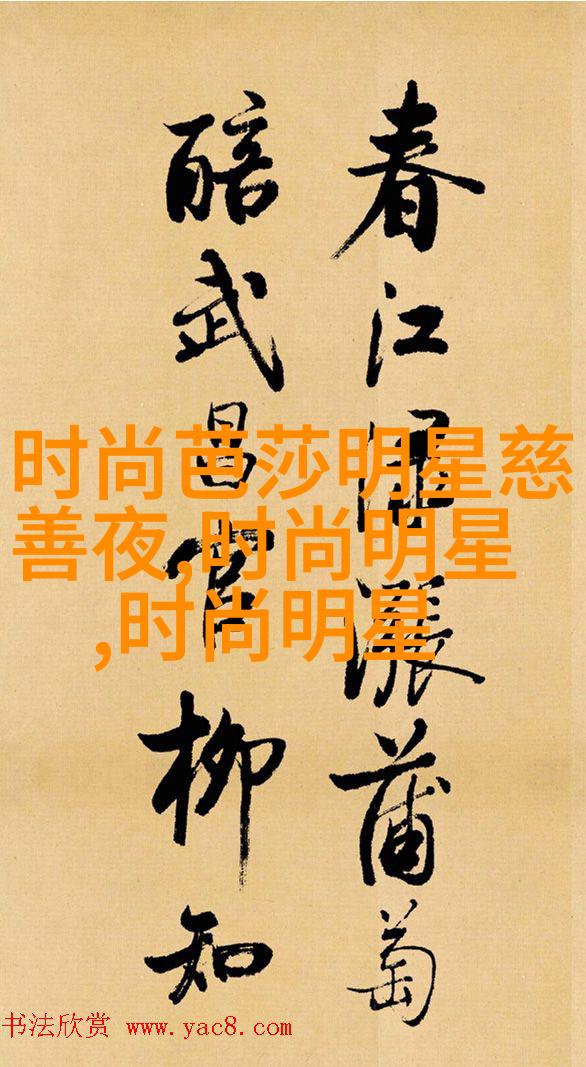 春江漲蒲萄
醅武昌官柳知
时尚芭莎明星慈
善夜,时尚明星
,时尚明星
书法欣赏 www.yac8.com